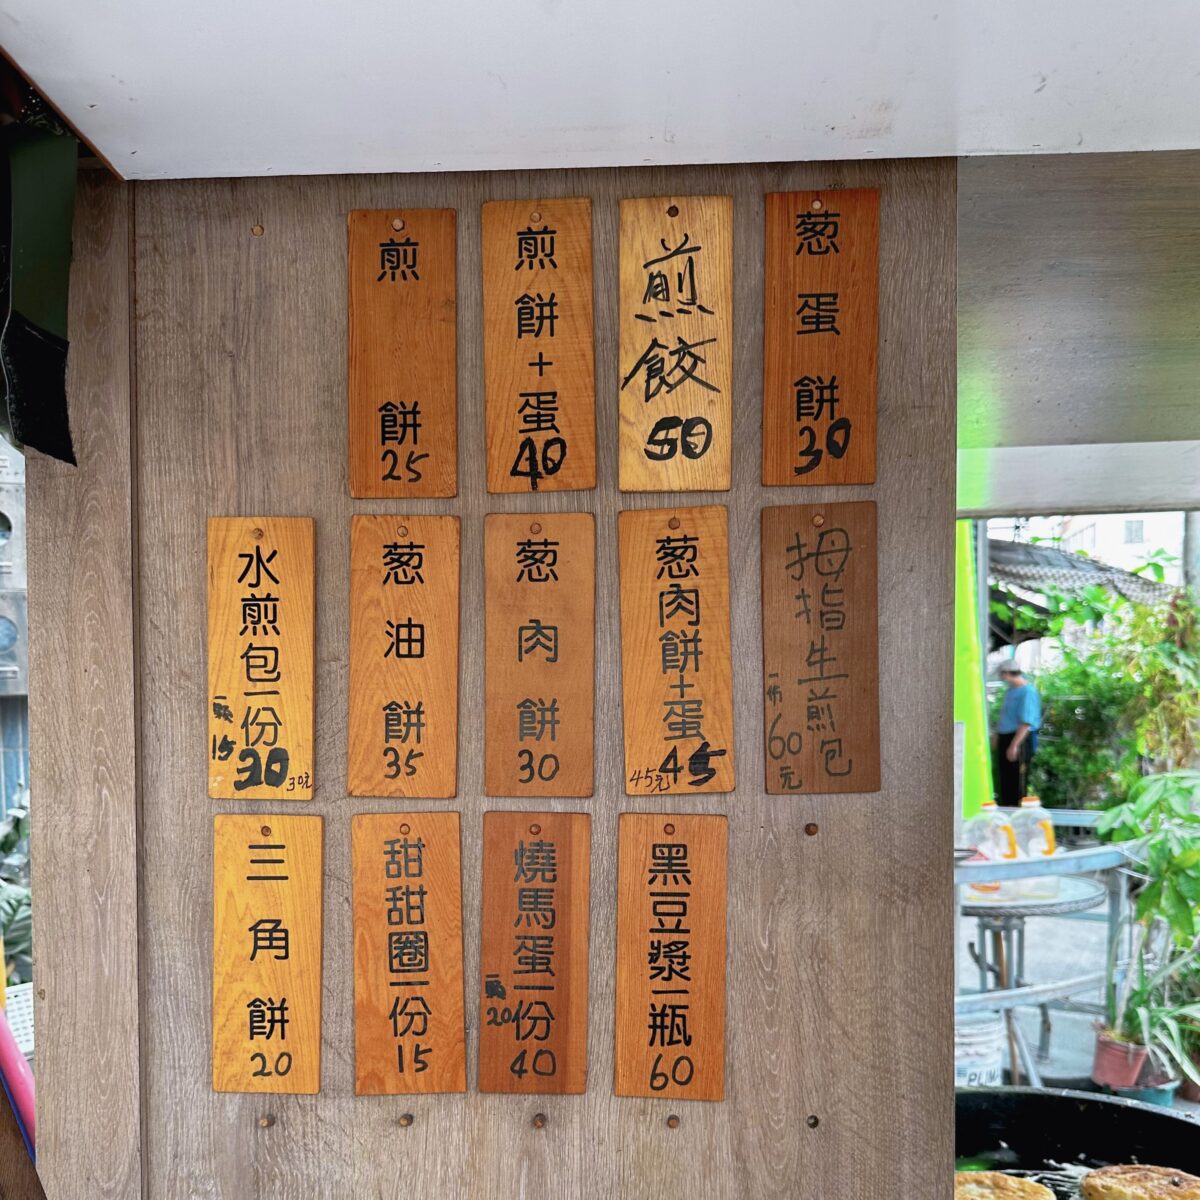 煎餅
25
煎餅+蛋
40
煎餃
50
葱蛋餅
30
水煎包一份
30
一顆
15
30元
葱油餅
35
葱肉餅
30
葱肉餅+蛋
45
45元
拇指生煎包
一份
60
元
三角餅
20
甜甜圈一份
15
燒馬蛋一份
40
一顆
20
黑豆漿一瓶
60